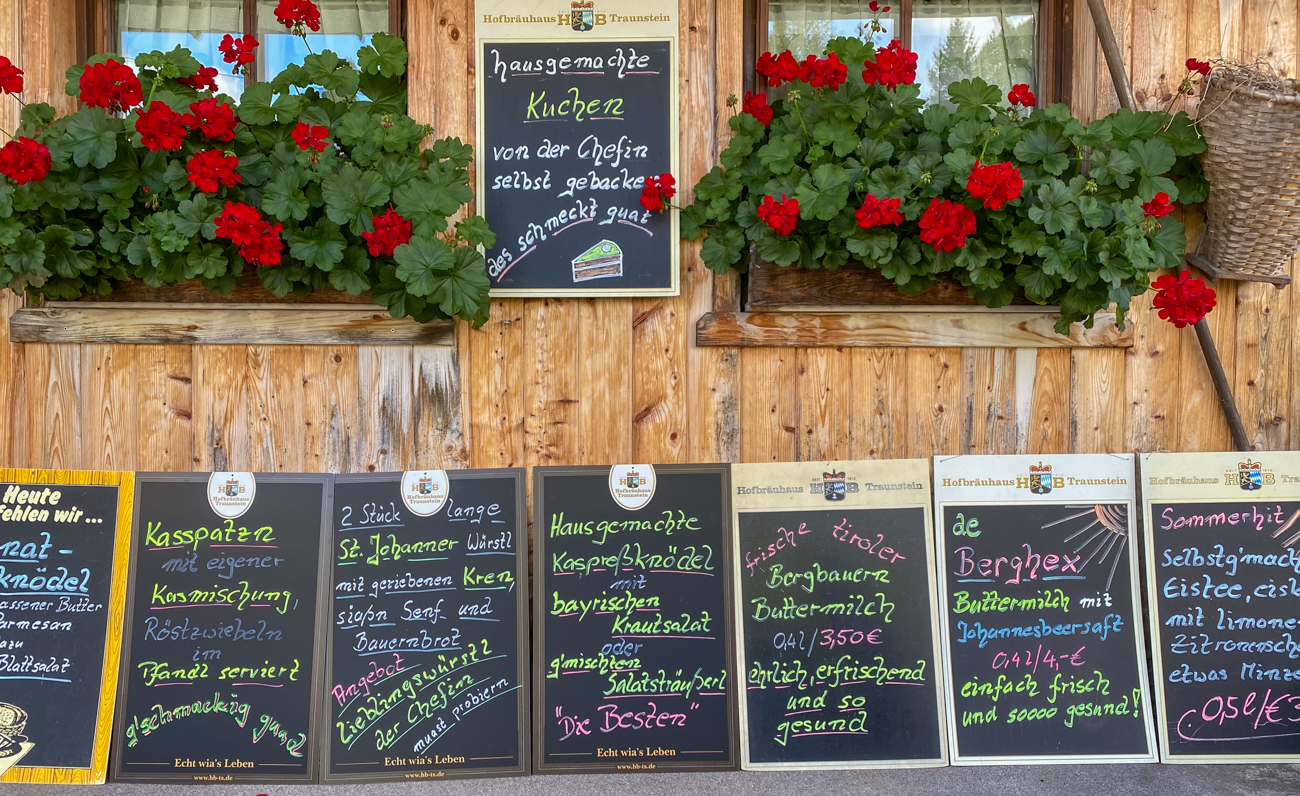 Hofbräuhaus HB Traunstein
hausgemachte
Kuchen
von der Chefin
selbst gebacken
des schmeckt guat
Heute
fehlen wir ...
nat-
knödel
assener Butter
Parmesan
azu
Blattsalat
Hofbräuhaus
Traunstein
Kasspatzn
mit eigener
Kasmischung,
Röstzwiebeln
im
Pfandl serviert
g'schmackig guad
Echt wia's Leben
www.hb-ts.de
Hofbräuhaus
Traunstein
2 Stück lange
St. Johanner Würstl
mit geriebenen Kren,
siaßn Senf und
Bauernbrot
Angebot
Lieblingswürstl
der Chefin
muast probiern
Echt wia's Leben
www.hb-ts.de
Hofbräuhaus
Traunstein
Hausgemachte
Kaspreßknödel
mit
bayrischen
Krautsalat
oder
g'mischten
Salatsträußerl
"Die Besten"
Echt wia's Leben
www.hb-ts.de
Hofbräuhaus HB Traunstein
frische tiroler
Bergbauern
Buttermilch
0,4l/3,50€
ehrlich, erfrischend
und so
gesund
Hofbräuhaus HB Traunstein
de
Berghex
Buttermilch mit
Johannesbeersaft
0,4l/4,-€
einfach frisch
und soooo gesund!
Hofbräuhaus HB Traunstein
Sommerhit
Selbstg'mach
Eistee, eisk
mit Limone-
Zitronensch
etwas Minze
0,5l/€3